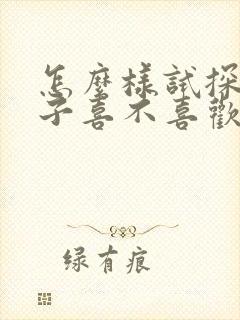 怎麼樣試探
子喜不喜歡
绿有痕